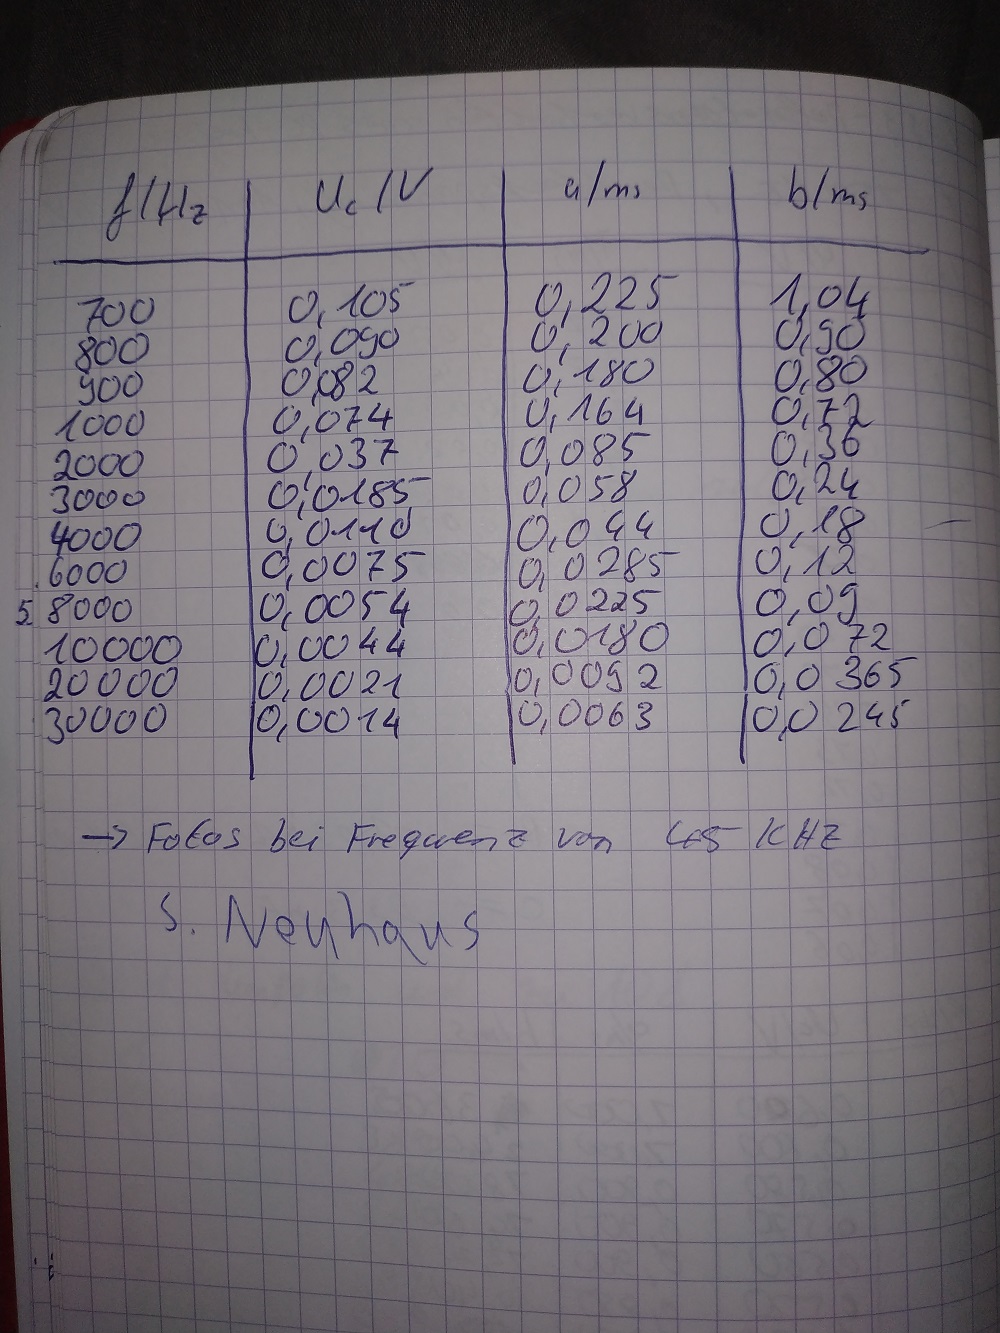 f/Hz U_c/V a/ms b/ms
700 0,105 0,225 1,04
800 0,090 0,200 0,90
900 0,082 0,180 0,80
1000 0,074 0,164 0,72
2000 0,037 0,085 0,36
3000 0,0185 0,058 0,24
4000 0,0110 0,044 0,18
6000 0,0075 0,0285 0,12
8000 0,0054 0,0225 0,09
10000 0,0044 0,0180 0,072
20000 0,0021 0,0092 0,0365
30000 0,0014 0,0063 0,0245
→ Fotos bei Frequenz von KHZ
S. Neuhaus